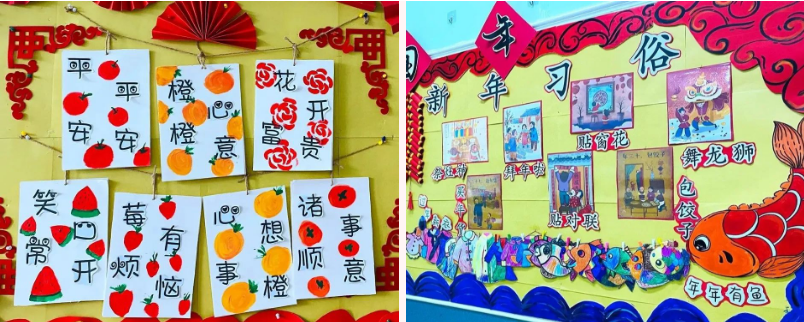 平平安安
橙心橙意
花开富贵
笑口常开
莓有烦恼
心想事橙
诸事顺意
年
新年习俗
祭灶神
拜年啦
贴窗花
舞龙狮
贴对联
包饺子
年年有鱼